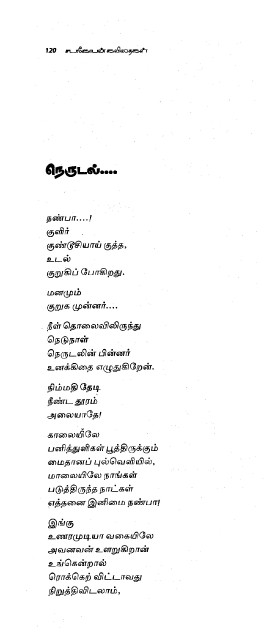 120
நெருடல்....
நண்பா....!
குளிர்
குண்டூசியாய் குத்த,
உடல்
குறுகிப் போகிறது.
மனமும்
குறுக முன்னர்....
நீள் தொலைவிலிருந்து
நெடுநாள்
நெருடலின் பின்னர்
உனக்கிதை எழுதுகிறேன்.
நிம்மதி தேடி
நீண்ட தூரம்
அலையாதே!
காலையிலே
பனித்துளிகள் பூத்திருக்கும்
மைதானப் புல்வெளியில்,
மாலையிலே நாங்கள்
படுத்திருந்த நாட்கள்
எத்தனை இனிமை நண்பா!
இங்கு
உணரமுடியா வகையிலே
அவனவன் உளறுகிறான்
உங்கென்றால்
ரொக்கெற் விட்டாவது
நிறுத்திவிடலாம்,